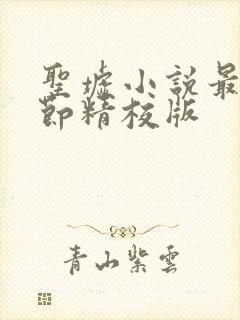 聖墟小說最
節精校版
青山紫雲